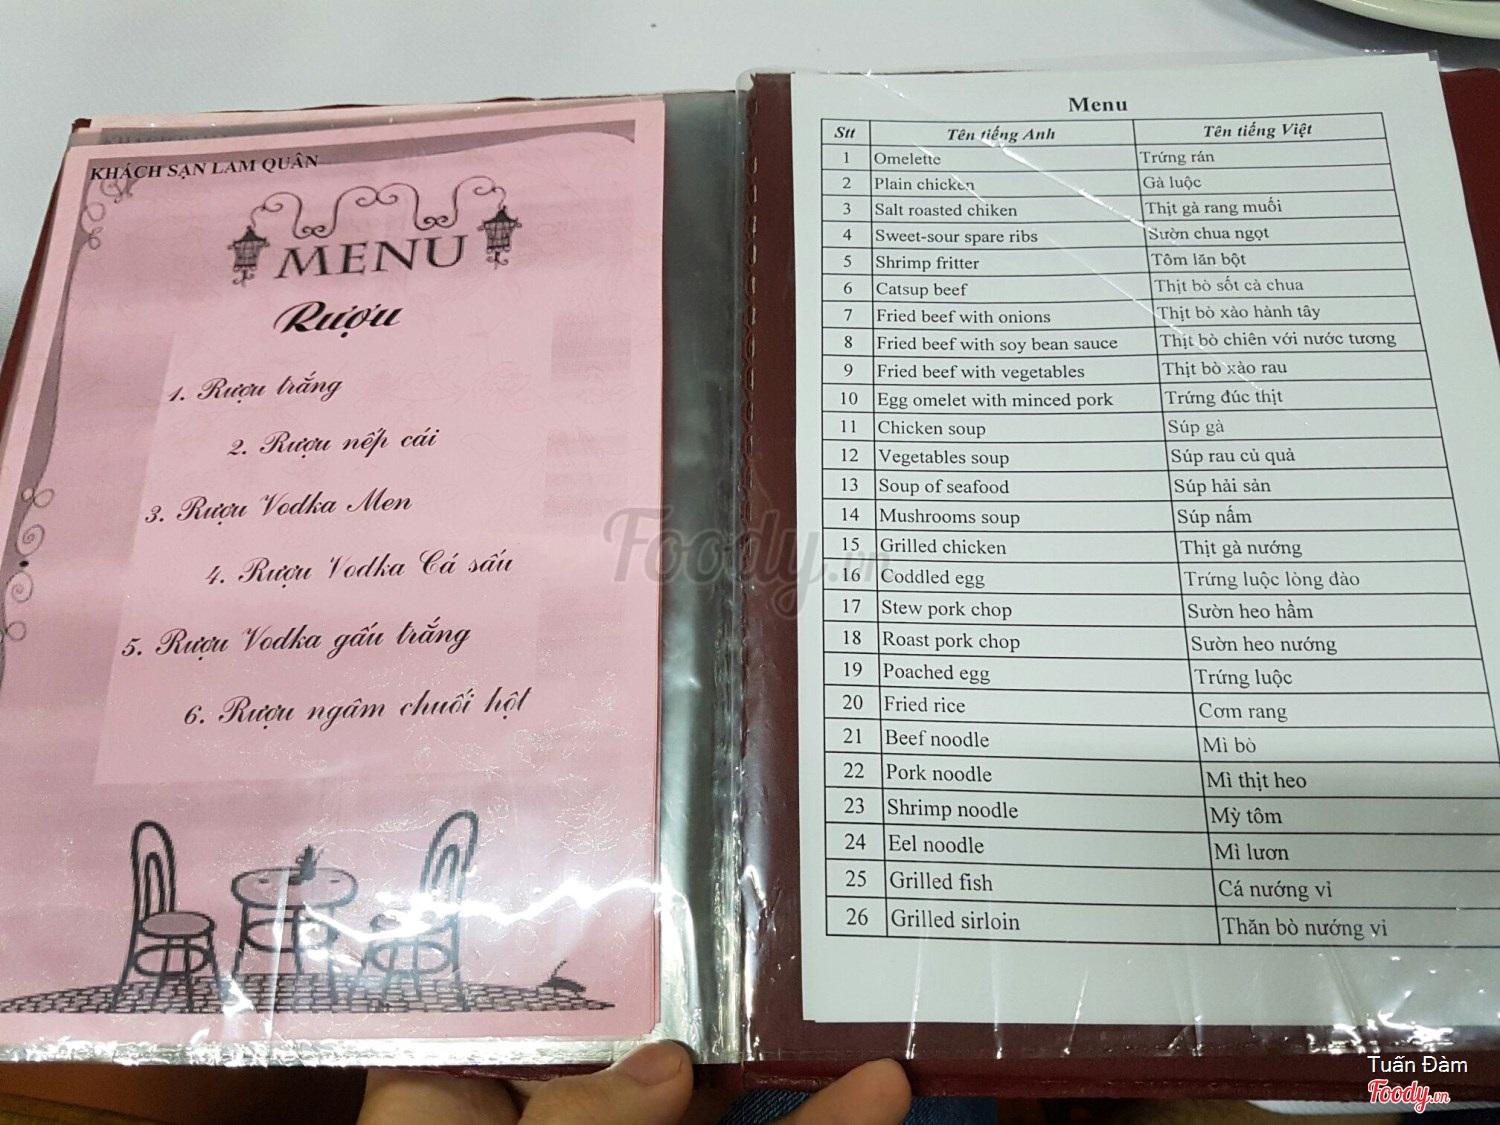 KHÁCH SẠN LAM QUÂN
MENU
Rượu
1. Rượu trắng
2. Rượu nếp cái
3. Rượu Vodka Men
4. Rượu Vodka Cá sấu
5. Rượu Vodka gấu trắng
6. Rượu ngâm chuối hột
Menu
Stt Tên tiếng Anh Tên tiếng Việt
1 Omelette Trứng rán
2 Plain chicken Gà luộc
3 Salt roasted chiken Thịt gà rang muối
4 Sweet-sour spare ribs Sườn chua ngọt
5 Shrimp fritter Tôm lăn bột
6 Catsup beef Thịt bò sốt cà chua
7 Fried beef with onions Thịt bò xào hành tây
8 Fried beef with soy bean sauce Thịt bò chiên với nước tương
9 Fried beef with vegetables Thịt bò xào rau
10 Egg omelet with minced pork Trứng đúc thịt
11 Chicken soup Súp gà
12 Vegetables soup Súp rau củ quả
13 Soup of seafood Súp hải sản
14 Mushrooms soup Súp nấm
15 Grilled chicken Thịt gà nướng
16 Coddled egg Trứng luộc lòng đào
17 Stew pork chop Sườn heo hầm
18 Roast pork chop Sườn heo nướng
19 Poached egg Trứng luộc
20 Fried rice Cơm rang
21 Beef noodle Mì bò
22 Pork noodle Mì thịt heo
23 Shrimp noodle Mỳ tôm
24 Eel noodle Mì lươn
25 Grilled fish Cá nướng vỉ
26 Grilled sirloin Thăn bò nướng vỉ
Foody.vn
Tuấn Đàm
Foody.vn